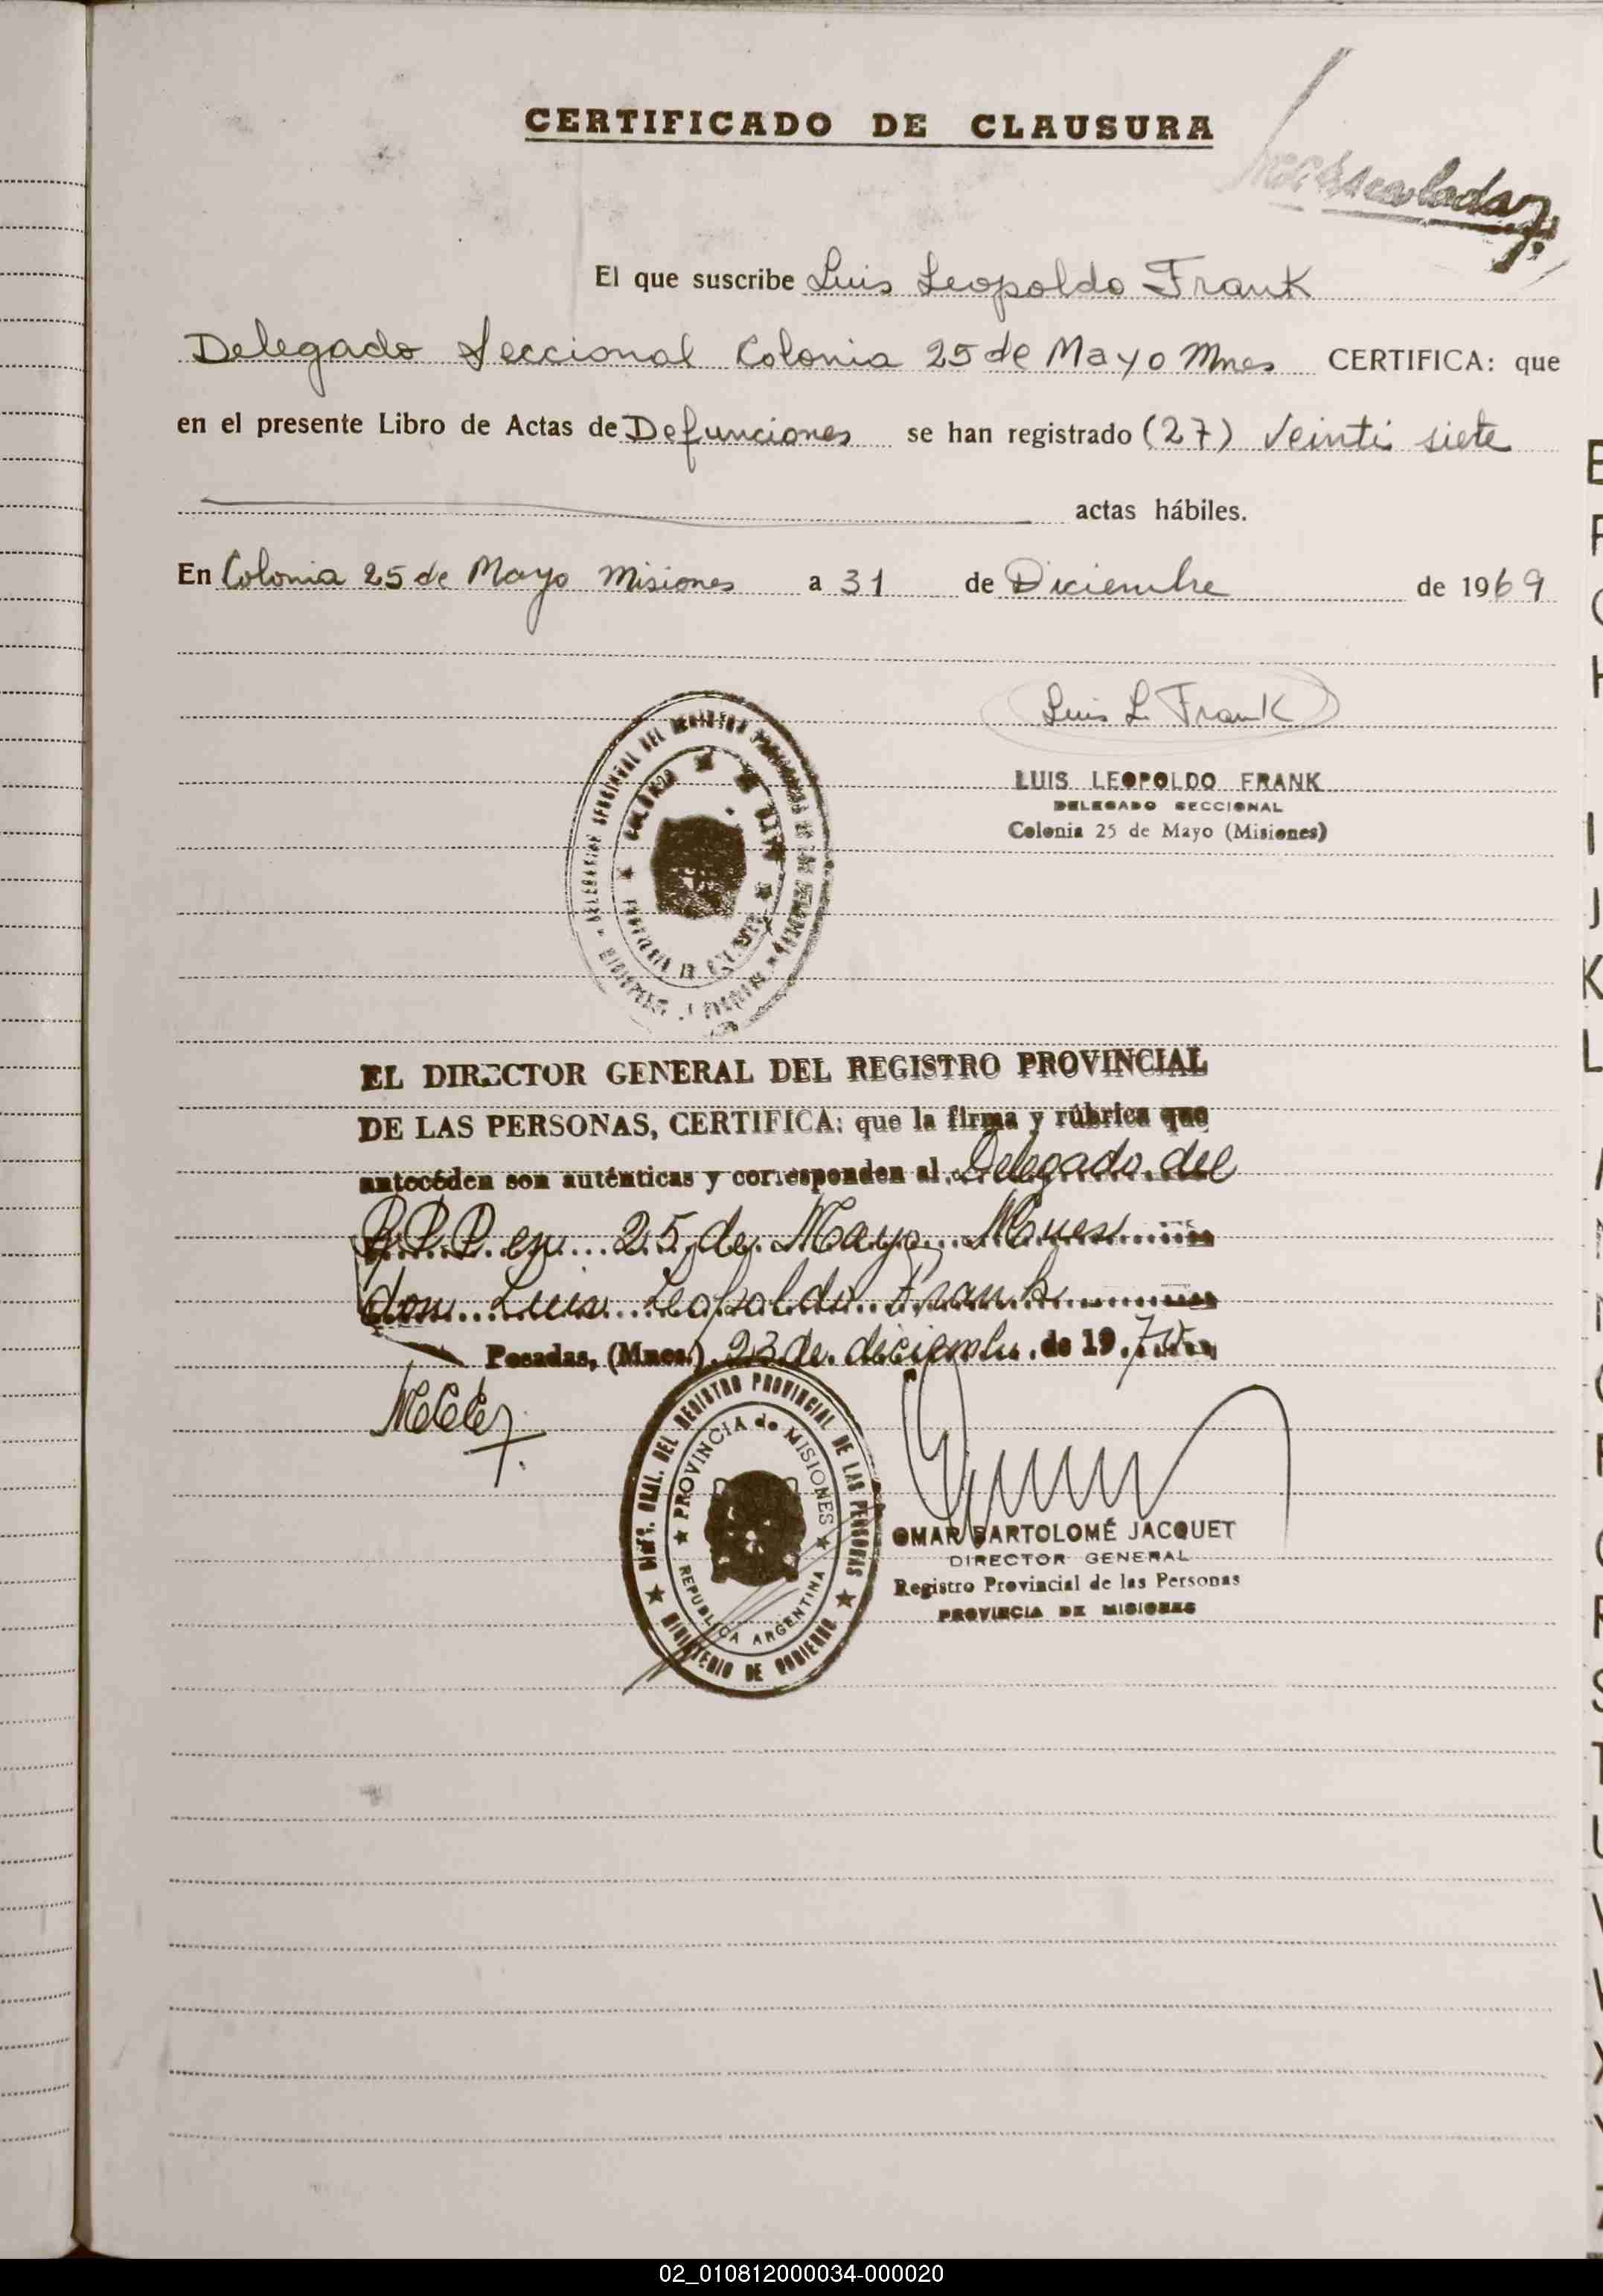 CERTIFICADO DE CLAUSURA
El que suscribe Luis Leopoldo Frank
Delegado Seccional Colonia 25 de Mayo Mnes CERTIFICA: que
en el presente Libro de Actas de Defunciones se han registrado (27) Veinti siete
actas hábiles.
En Colonia 25 de Mayo Misiones a 31 de Diciembre de 1969
Luis L. Frank
LUIS LEOPOLDO FRANK
DELEGADO SECCIONAL
Colonia 25 de Mayo (Misiones)
COLONIA
EL DIRECTOR GENERAL DEL REGISTRO PROVINCIAL
DE LAS PERSONAS, CERTIFICA: que la firma y rúbrica que
anteceden son auténticas y corresponden al Delegado del
R.P.P. en 25 de Mayo Mnes
don Luis Leopoldo Frank
Posadas, (Mnes.) 23 de diciembre de 19
DIREC. GRAL. DEL REGISTRO PROVINCIAL DE LAS PERSONAS
PROVINCIA de MISIONES
REPUBLICA ARGENTINA
MINISTERIO DE GOBIERNO
OMAR BARTOLOMÉ JACQUET
DIRECTOR GENERAL
Registro Provincial de las Personas
PROVINCIA DE MISIONES
E
F
G
H
I
J
K
L
02_010812000034-000020